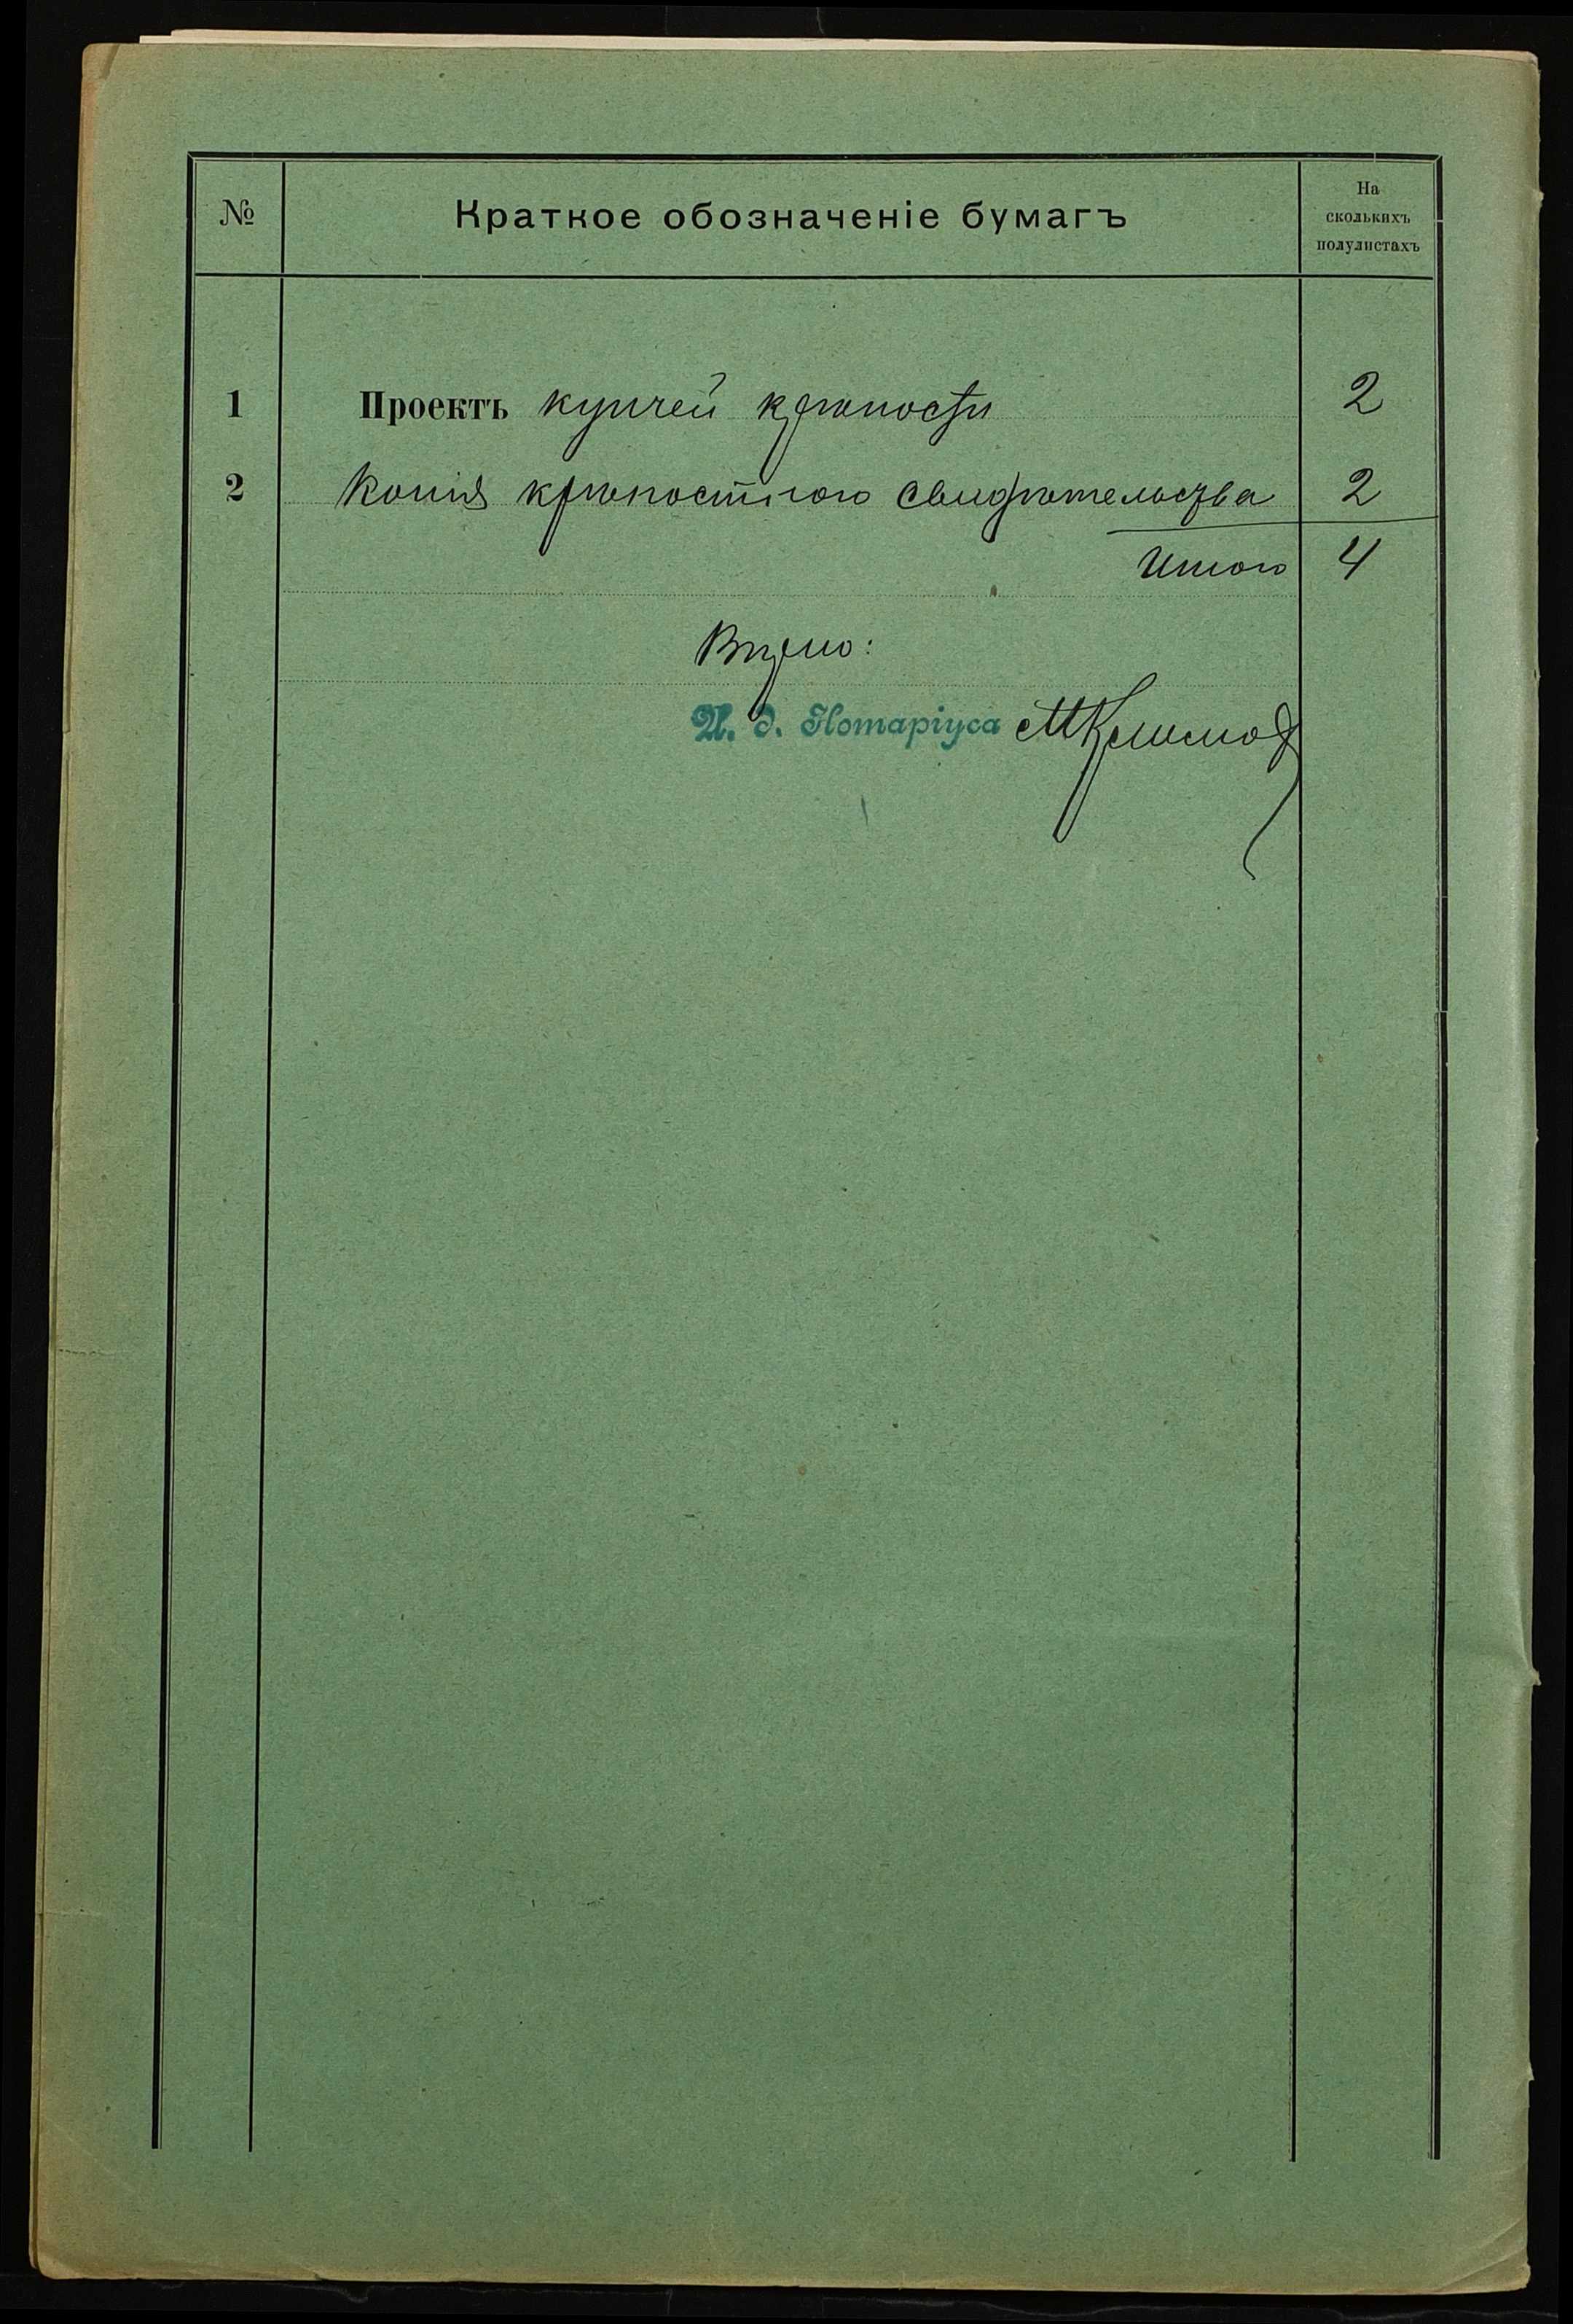 № Краткое обозначеніе бумагъ На
сколькихъ
полулистахъ
1 Проектъ купчей крѣпости 2
2 Копія крѣпостного свидѣтельства 2
Итого 4
Вѣрно:
И. д. Нотаріуса